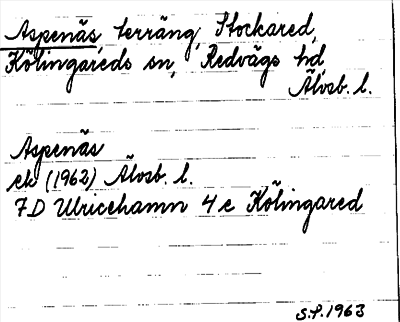 Aspenäs, terräng, Stockared,
Kölingareds sn, Redvägs hd,
Älvsb. l.
Aspenäs
ek (1962) Älvsb. l.
7D Ulricehamn 4e Kölingared
S.P. 1963